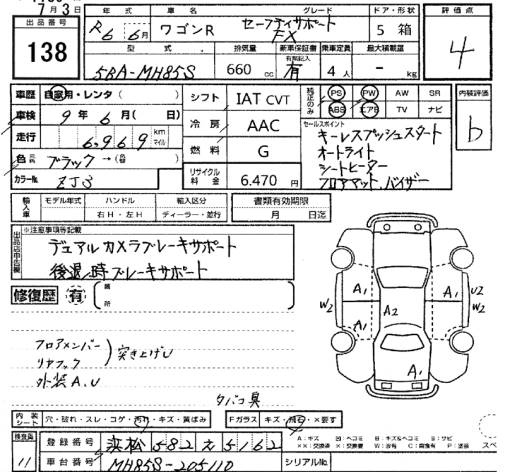 7月3日
出品番号 138
年式 R6 6月
車名 ワゴンR
グレード セーフティサポート FX
ドア・形状 5 箱
評価点 4
型式 5BA-MH85S
排気量 660 cc
新車保証書 有無記入 有
乗車定員 4人
最大積載量 - kg
車歴 自家用・レンタ( )
車検 9年6月( 日)
走行 6,969 km マイル
色 元色 ブラック→(替色 )
カラーNo. ZJ3
シフト IAT CVT
冷房 AAC
燃料 G
リサイクル料金 6.470円
純正のみ PS PW AW SR
ABS エアB TV ナビ
内装評価 b
セールスポイント
キーレスプッシュスタート
オートライト
シートヒーター
フロアマット、バイザー
輸入車 モデル年式 ハンドル 輸入区分
年 右H・左H ディーラー・並行
書類有効期限
月 日迄
出品店申告欄 ※注意事項等記載
デュアルカメラブレーキサポート
後退時ブレーキサポート
修復歴 有 箇所
フロアメンバー
リヤフック
突き上げU
外装A.U
タバコ臭
A1 U2 W2 A2 A1 W2 A1 A1
内装シート 穴・破れ・スレ・コゲ・汚れ・キズ・黄ばみ
Fガラス キズ・補石・×要す
検査員 11
登録番号 浜松 582 え 5162
車台番号 MH85S-205110
シリアルNo.